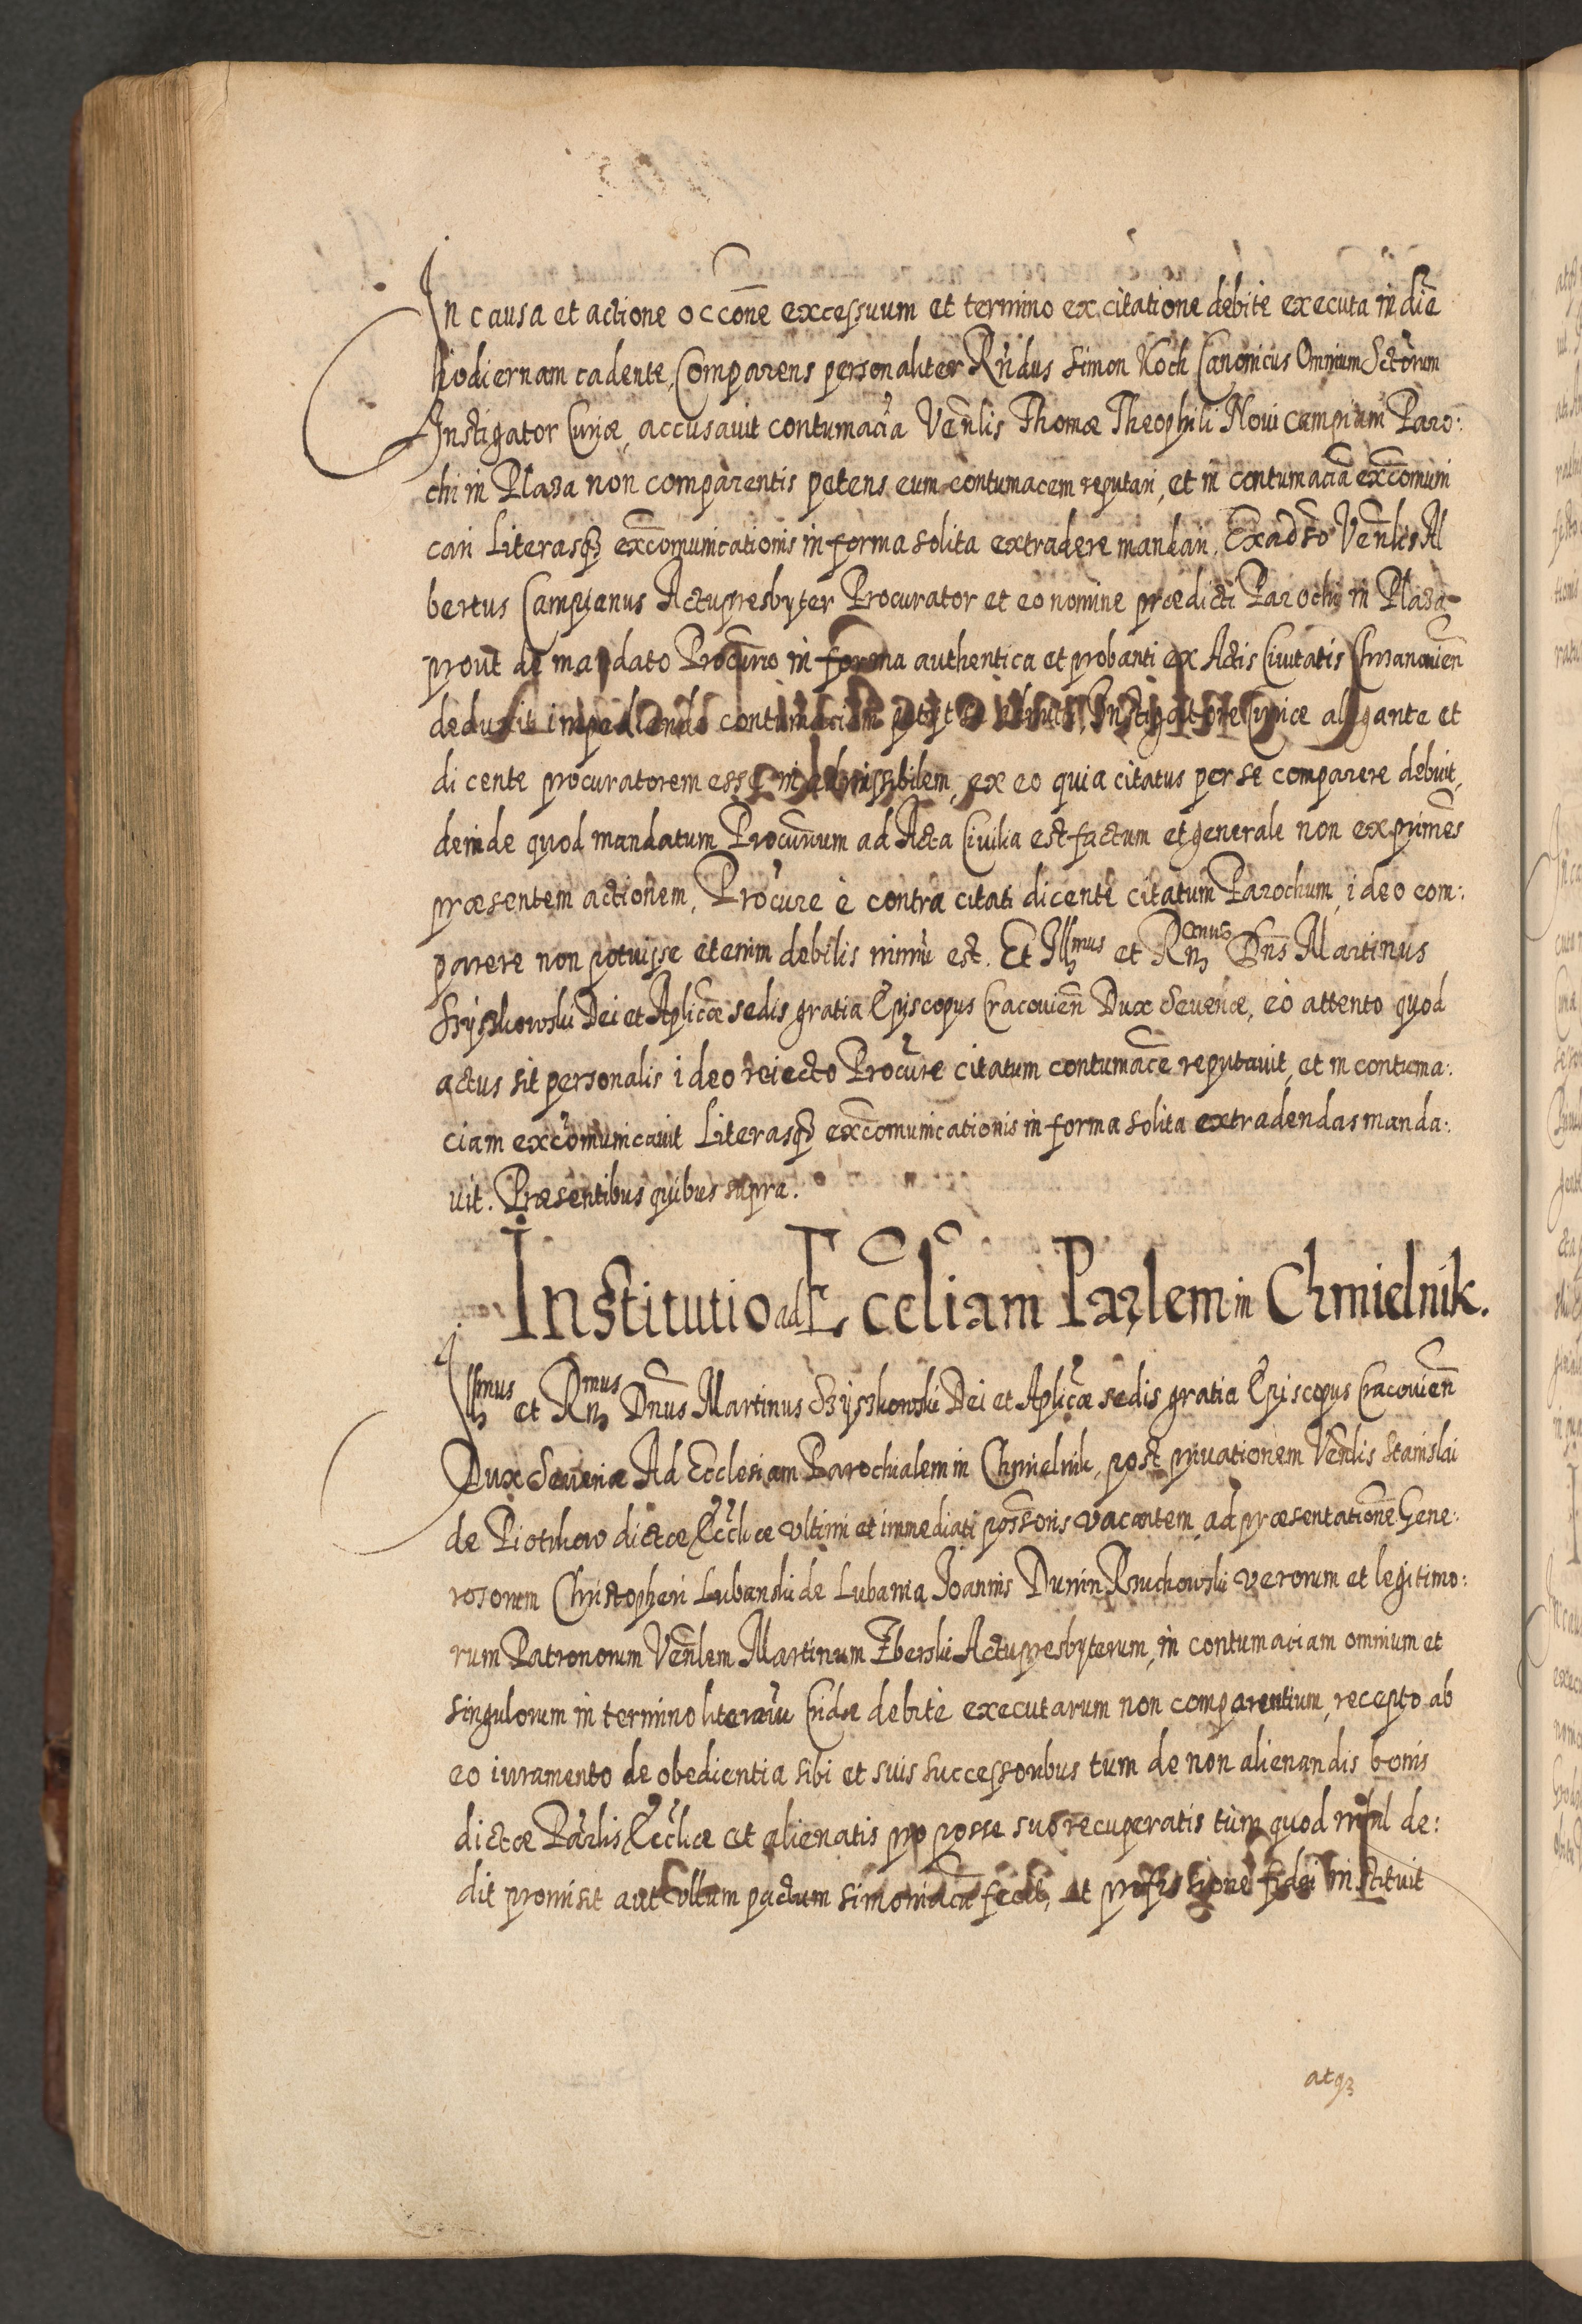 In causa et actione occōne excessuum et termino ex citatione debite executa in diē
hodiernam cadente, Comparens personaliter Rn̄dus Simon Koch Canonicus Omnium Sctōrum
Instigator Curiæ, accusavit contumaciā Ven̄lis Thomæ Theophili Novi campiani Paro:
chi in Plaza non comparentis petens eum contumacem reputari, et in contumaciā exc̄omuni
cari Literasq₃ exc̄omunicationis in forma solita extradere mandari. Ex adu͞so Ven̄lis Al
bertus Campianus Actupresbyter Procurator et eo nomine prædicti Parochi in Plaza
prout de mandato Procur̄io in forma authentica et probanti ex Actis Civitatis
deduxit impediendo contumaciam petyt se admitti, Instigatore Curiæ allegante et
dicente procuratorem esse inadmissibilem, ex eo quia citatus per se comparere debuit,
deinde quod mandatum Procur̄ium ad Acta Civilia est factum et generale non exprimēs
præsentem actionem, Procūre è contra citati dicente citatum Parochum, ideo com:
parere non potuisse etenim debilis nimiū est. Et Illmus et Rn̄mus Dn̄s Martinus
Szyszkowski Dei et Aplicæ sedis gratia Episcopus Cracovien̄ Dux Severiæ, eò attento quod
actus sit personalis ideo reiecto Procūre citatum contumacē reputavit, et in contuma:
ciam exc̄omunicavit Literasq₃ exc̄omunicationis in forma solita extradendas manda:
vit. Præsentibus quibus supra.
Institutio ad Eccliam Parlem in Chmielnik.
Illmus et Rn̄mus Dn̄us Martinus Szyszkowski Dei et Aplicæ sedis gratia Episcopus Cracovien̄
Dux Severiæ Ad Ecclesiam Parochialem in Chmielnik, post privationem Ven̄lis Stanislai
de Piotrkow dictæ Eccliæ ultimi et immediati possōris vacantem, ad præsentationē Gene:
rosorum Christopheri Lubanski de Lubania Joannis Dunin veriorum et legitimo:
rum Patronorum Ven̄lem Martinum Zberski Actupresbyterum, in contumaciam omnium et
singulorum in termino literarū Cridæ debitè executarum non comparentium, recepto ab
eo iuramento de obedientia sibi et suis successoribus tum de non alienandis bonis
dictæ Parlis Eccliæ et alienatis pro posse suo recuperatis tùm quod nihil de:
dit promisit aut ullum pactum simoniacū fecit, et professione fidei instituit
atq₃